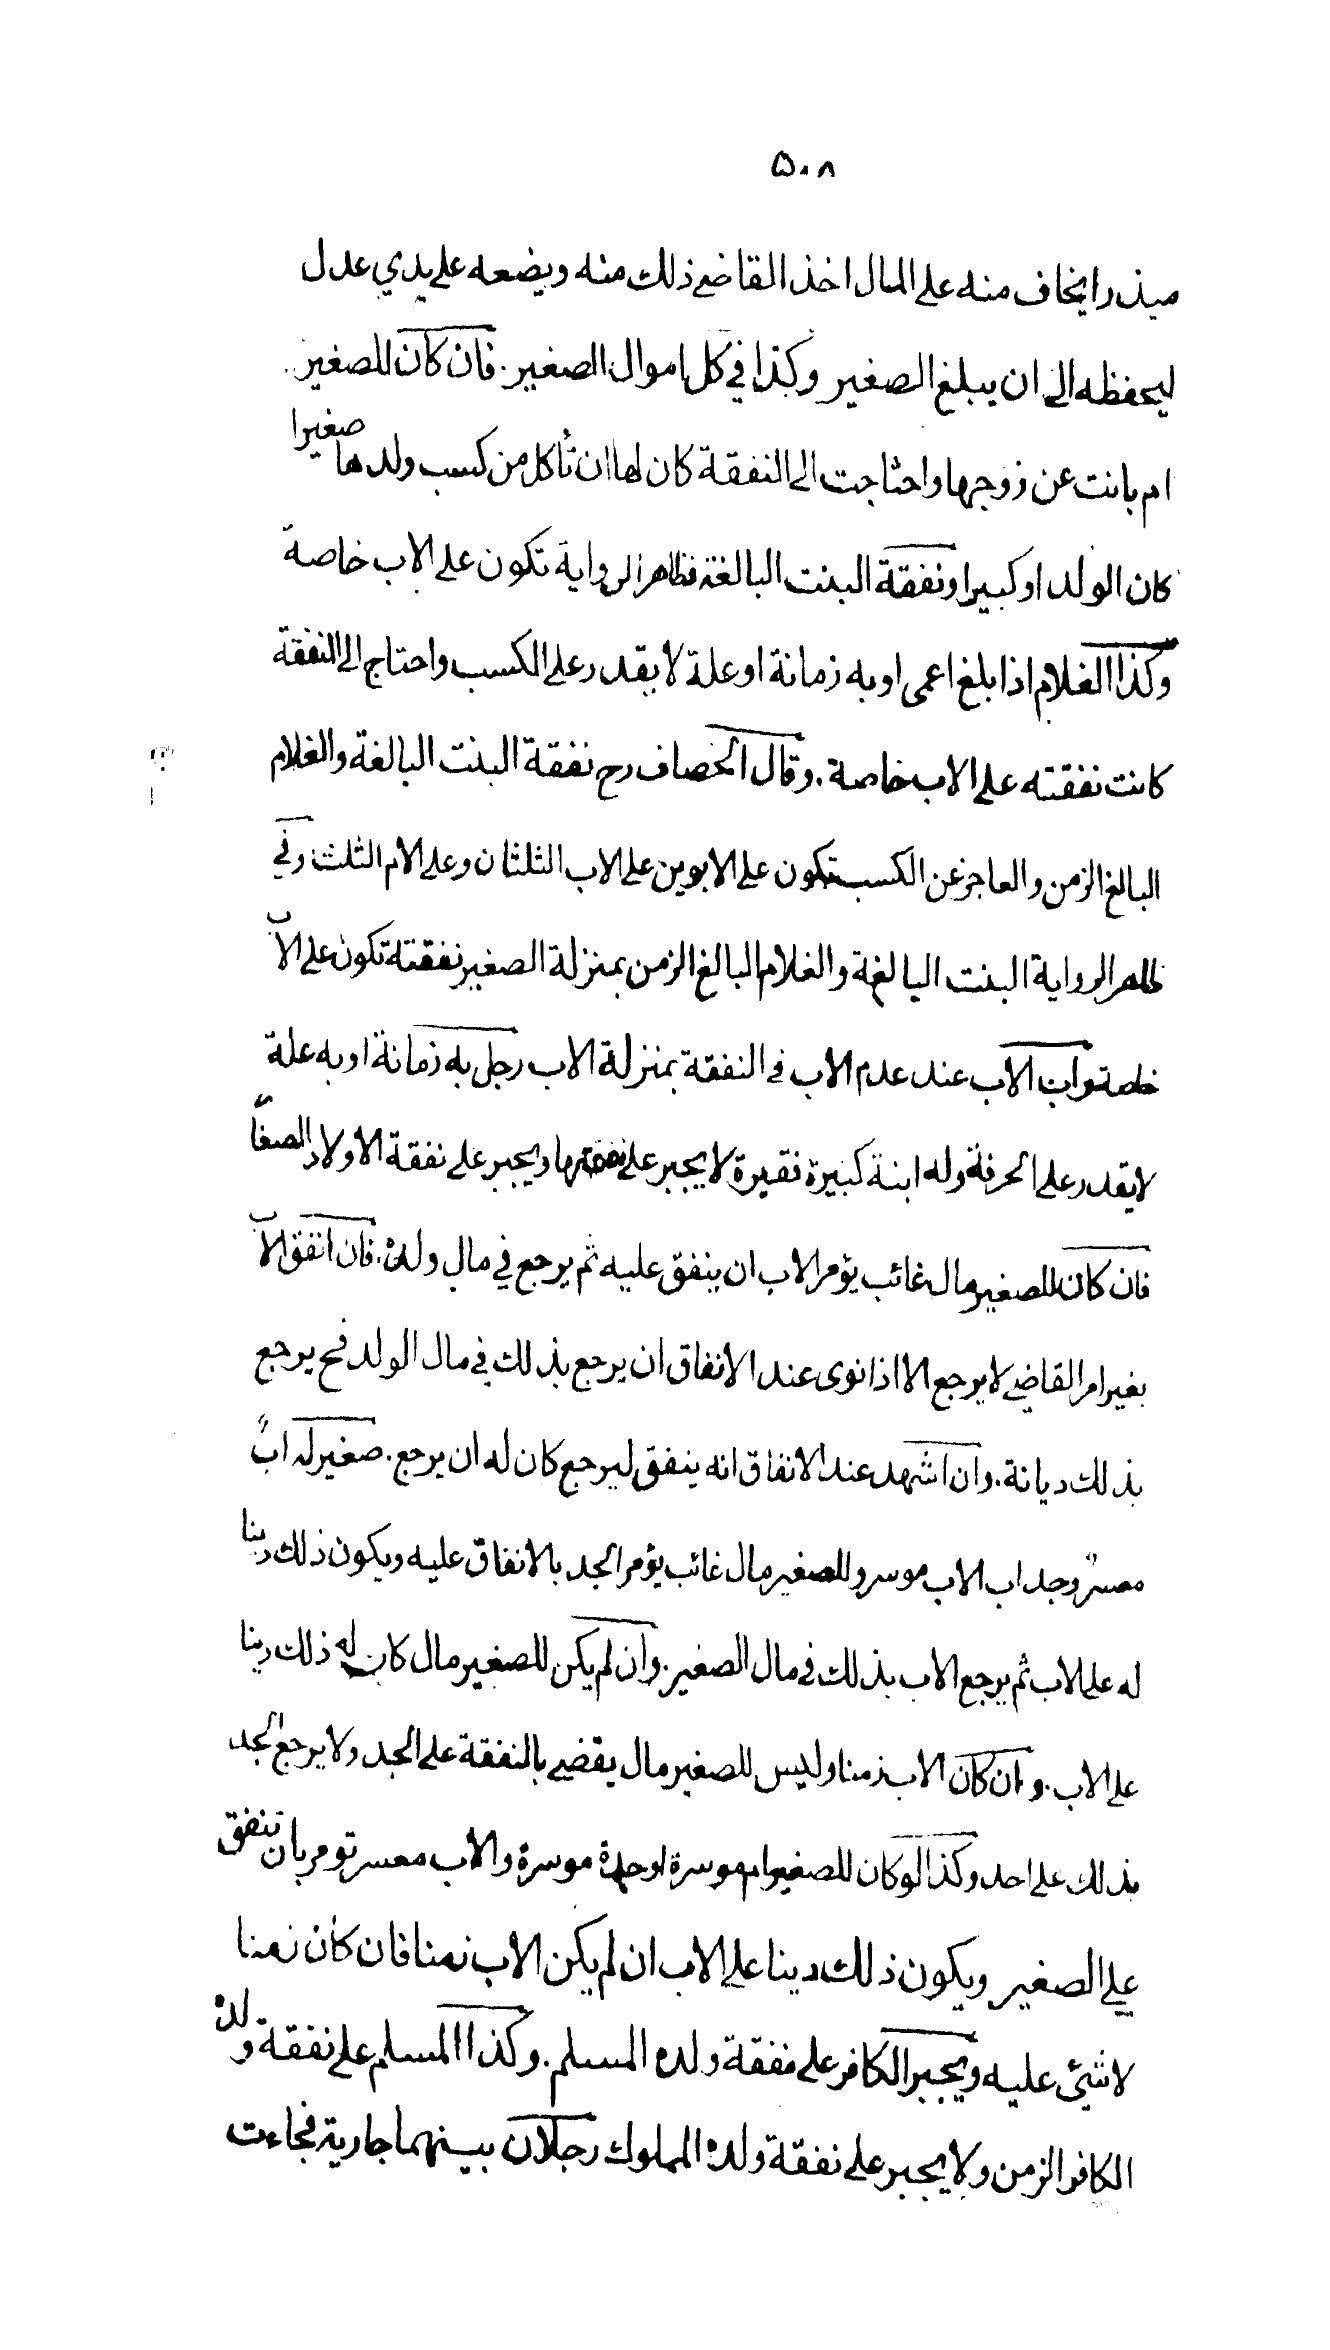 ۵۰۸
مبذرا يخاف منه على المال اخذ القاضي ذلك منه ويضعه على يدي عدل
ليحفظه الى ان يبلغ الصغير وكذا في كل اموال الصغير. فان كان للصغير
ام بانت عن زوجها واحتاجت الى النفقة كان لها ان تأكل من كسب ولدها صغيرا
كان الولد او كبيرا ونفقة البنت البالغة فظاهر الرواية تكون على الاب خاصة
وكذا الغلام اذا بلغ اعمى او به زمانة او علة لا يقدر على الكسب واحتاج الى النفقة
كانت نفقته على الاب خاصة. وقال الخصاف رح نفقة البنت البالغة والغلام
البالغ الزمن والعاجز عن الكسب تكون على الابوين على الاب الثلثان وعلى الام الثلث وفي
ظاهر الرواية البنت البالغة والغلام البالغ الزمن بمنزلة الصغير نفقتة تكون على الاب
خاصة واب الاب عند عدم الاب في النفقة بمنزلة الاب رجل به زمانة او به علة
لا يقدر على الحرفة وله ابنة كبيرة فقيرة لا يجبر على نفقتها ويجبر على نفقة الاولاد الصغار
فان كان للصغير مال غائب يؤمر الاب ان ينفق عليه ثم يرجع في مال ولده. فان انفق الاب
بغير امر القاضي لا يرجع الا اذا نوى عند الانفاق ان يرجع بذلك في مال الولد فح يرجع
بذلك ديانة. وان اشهد عند الانفاق انه ينفق ليرجع كان له ان يرجع. صغير له اب
معسر وجد اب الاب موسر وللصغير مال غائب يؤمر الجد بالانفاق عليه ويكون ذلك دينا
له على الاب ثم يرجع الاب بذلك في مال الصغير. وان لم يكن للصغير مال كان له ذلك دينا
على الاب. وان كان الاب زمنا وليس للصغير مال يقضي بالنفقة على الجد ولا يرجع الجد
بذلك على احد وكذا لو كان للصغير ام موسرة او جدة موسرة والاب معسر تومر بان تنفق
على الصغير ويكون ذلك دينا على الاب ان لم يكن الاب زمنا فان كان زمنا
لا شيئ عليه ويجبر الكافر على نفقة ولده المسلم. وكذا المسلم على نفقة ولده
الكافر الزمن ولا يجبر على نفقة ولده المملوك رجلان بينهما جارية فجاءت